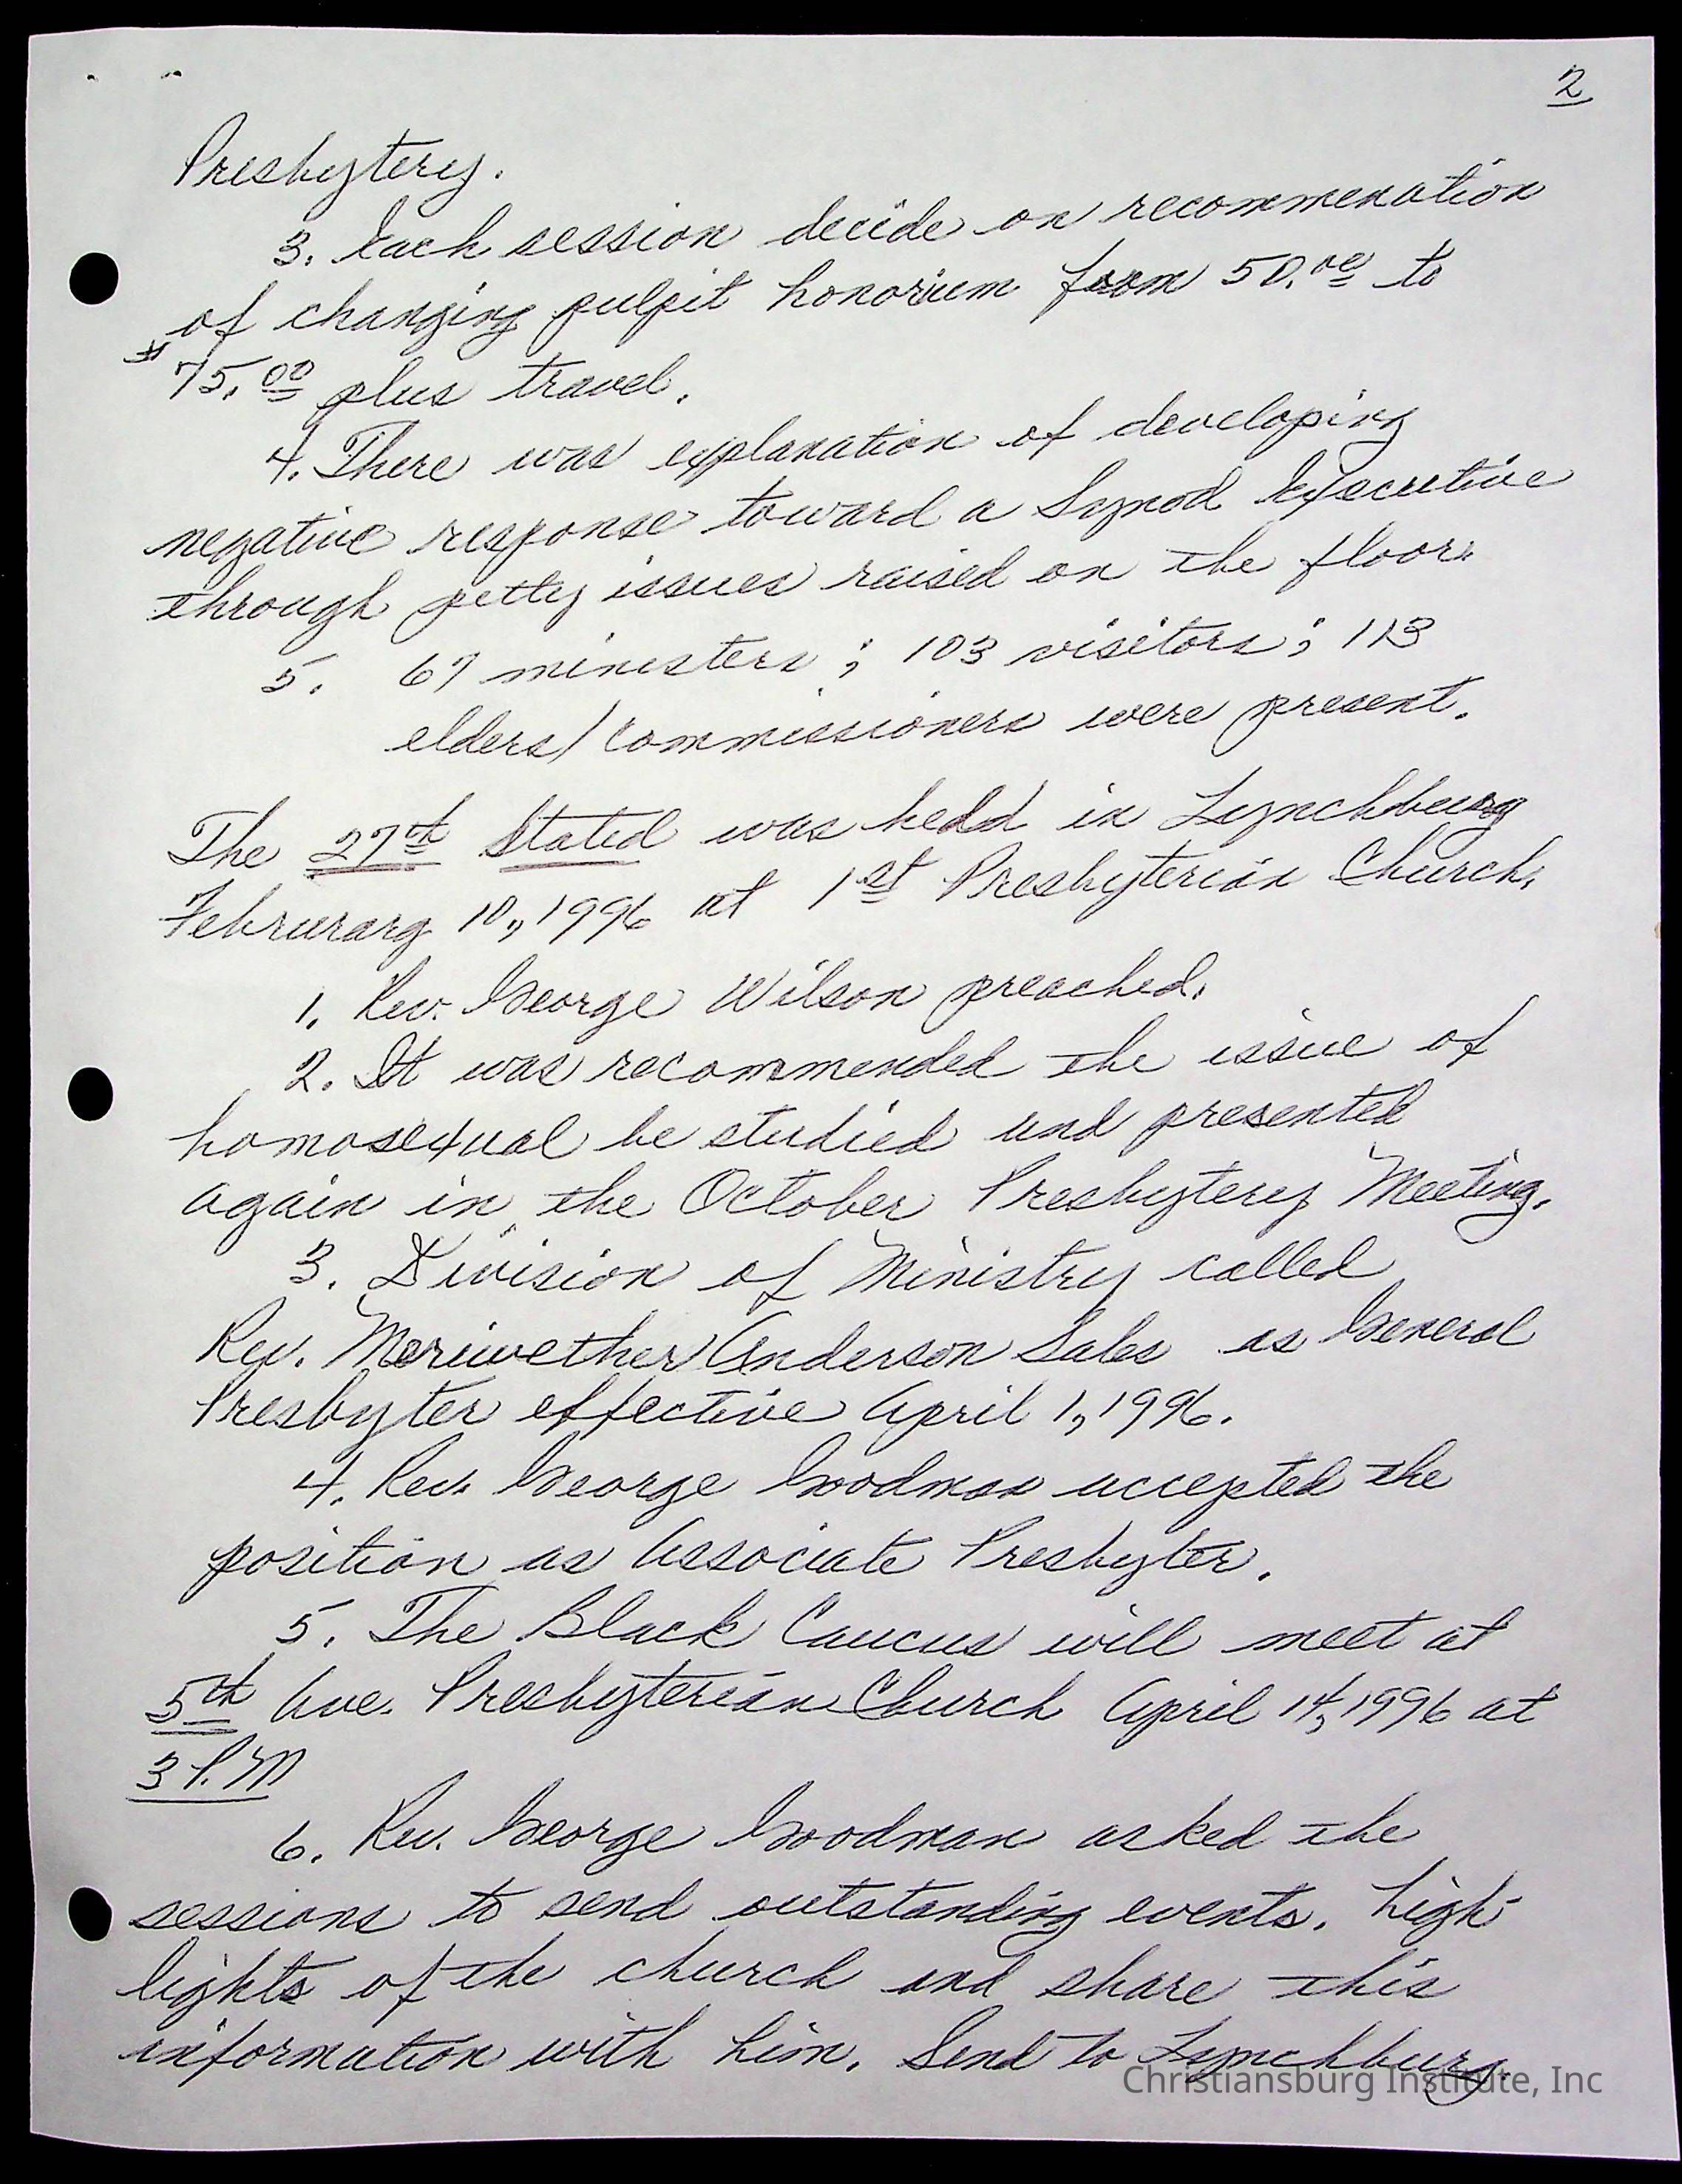 2
Presbytery.
3. Each session decide on recommenation
of changing pulpit honorium from 50.00 to
$75.00 plus travel.
4. There was explanation of developing
negative response toward a Synod Executive
through petty issues raised on the floor.
5. 67 ministers; 103 visitors; 113
elders/commissioners were present.
The 27th Stated was held in Lynchburg
Februrary 10, 1996 at 1st Presbyterian Church.
1. Rev. George Wilson preached.
2. It was recommended the issue of
homosexual be studied and presented
again in the October Presbytery Meeting.
3. Division of Ministry called
Rev. Meriwether Anderson Sales as General
Presbyter effective April 1, 1996.
4. Rev. George Goodman accepted the
position as Associate Presbyter.
5. The Black Caucus will meet at
5th Ave. Presbyterian Church April 14, 1996 at
3 P.M
6. Rev. George Goodman asked the
sessions to send outstanding events. high-
lights of the church and share this
information with him. Send to Lynchburg.
Christiansburg Institute, Inc